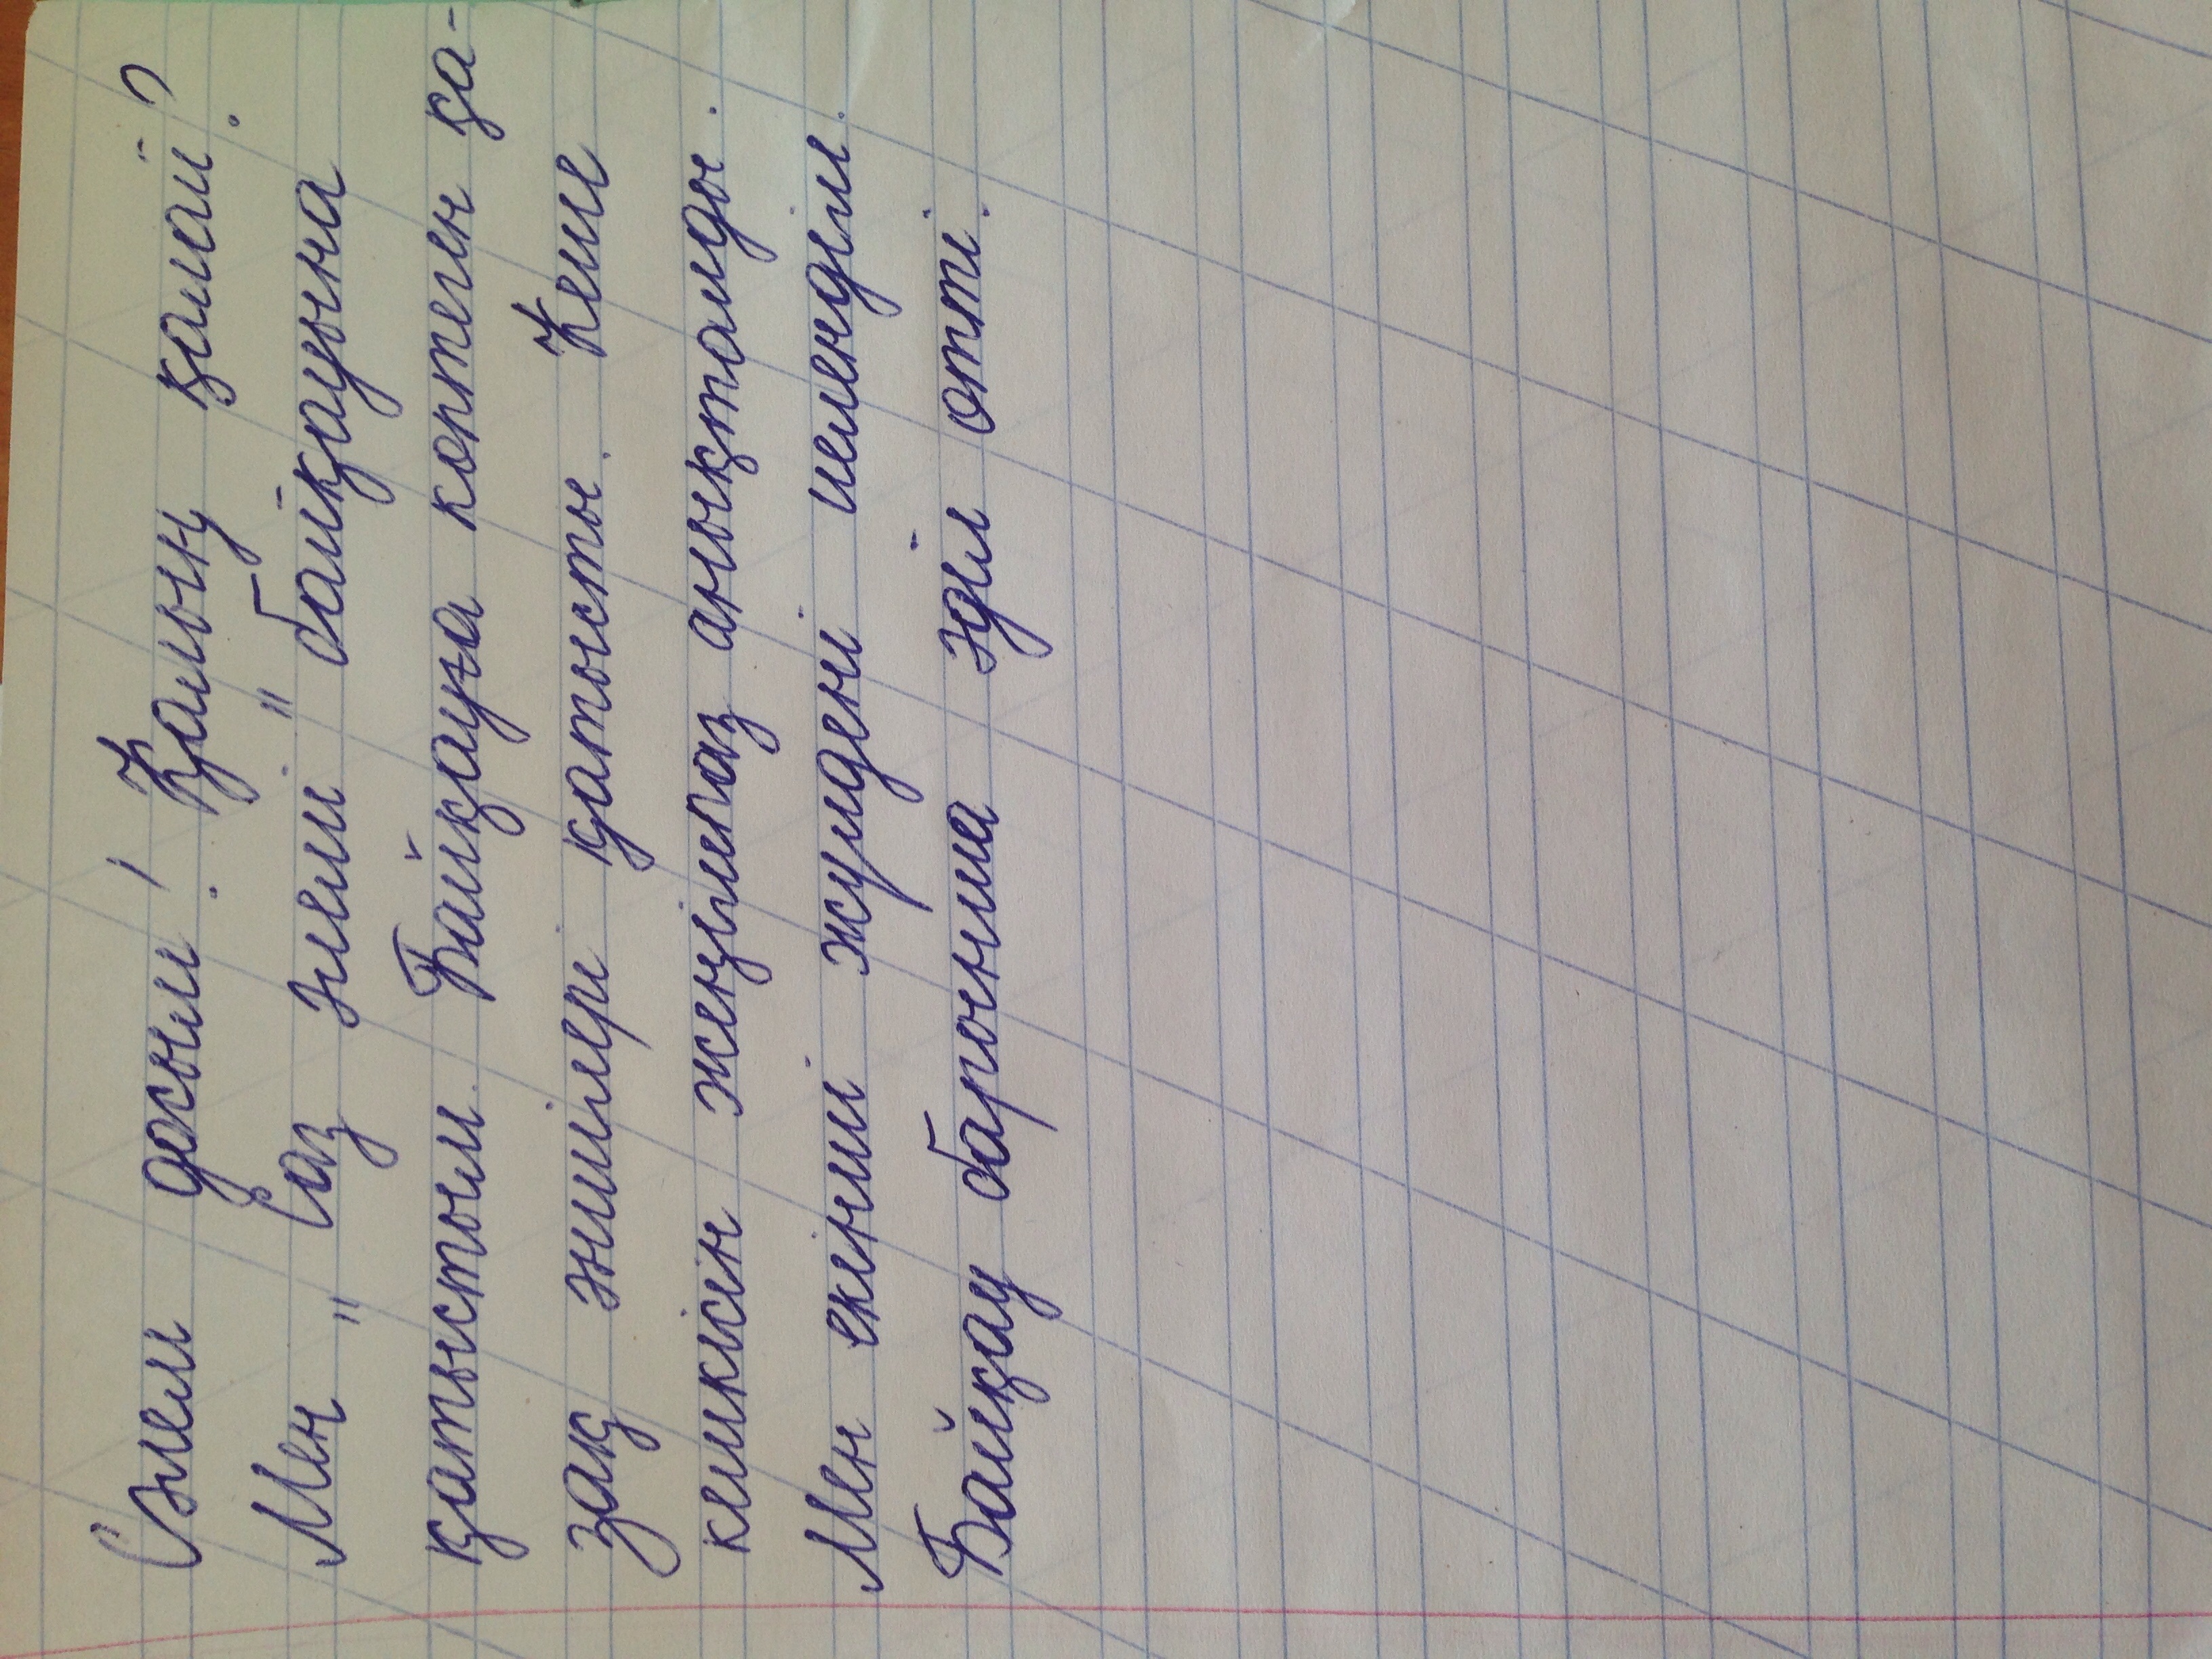 Сәлем досым! Қалың қалай?
Мен "Саз әлемі" байқауына
қатыстым. Байқауға коптеген қа-
зақ әншілері қатысты. Кеш
кешкісін жеңімпаз анықталды.
Мен екінші жүлдені иелендім.
Байқау барынша әділ отті.